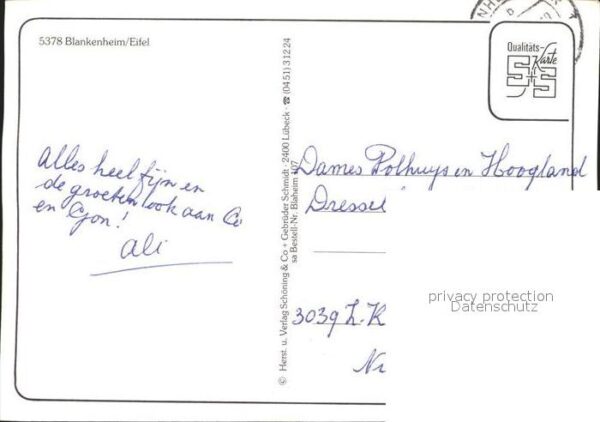 5378 Blankenheim/Eifel
Qualitäts-
Karte
S+S
Alles heel fijn en
de groeten ook aan Co
en Gon!
Ali
© Herst. u. Verlag Schöning & Co + Gebrüder Schmidt · 2400 Lübeck · ☎ (0451) 31224
sa Bestell-Nr.
Dames Polhuys en Hoogland
3039 Z.K
privacy protection
Datenschutz